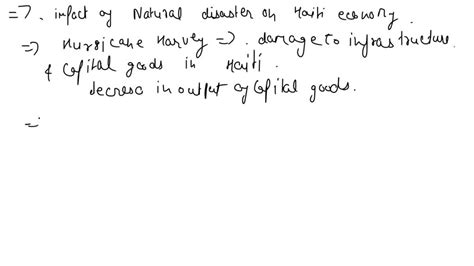 => . impact of Natural disaster on Haiti economy.
=> Hurricane Harvey => . damage to infrastructure.
& Capital goods in Haiti.
decrese in output of Capital goods.
=>